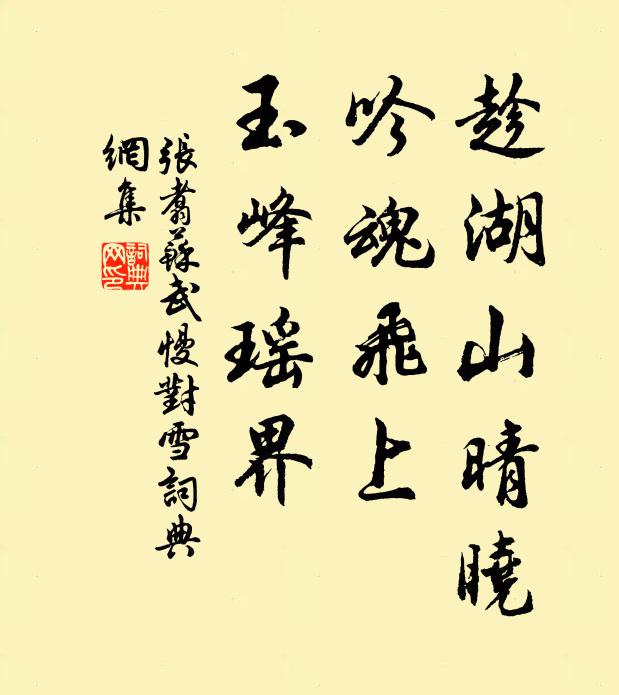 趁湖山晴曉
吟魂飛上
玉峰瑶界
張翥蘇武慢對雪詞典
網集
詞典
网印